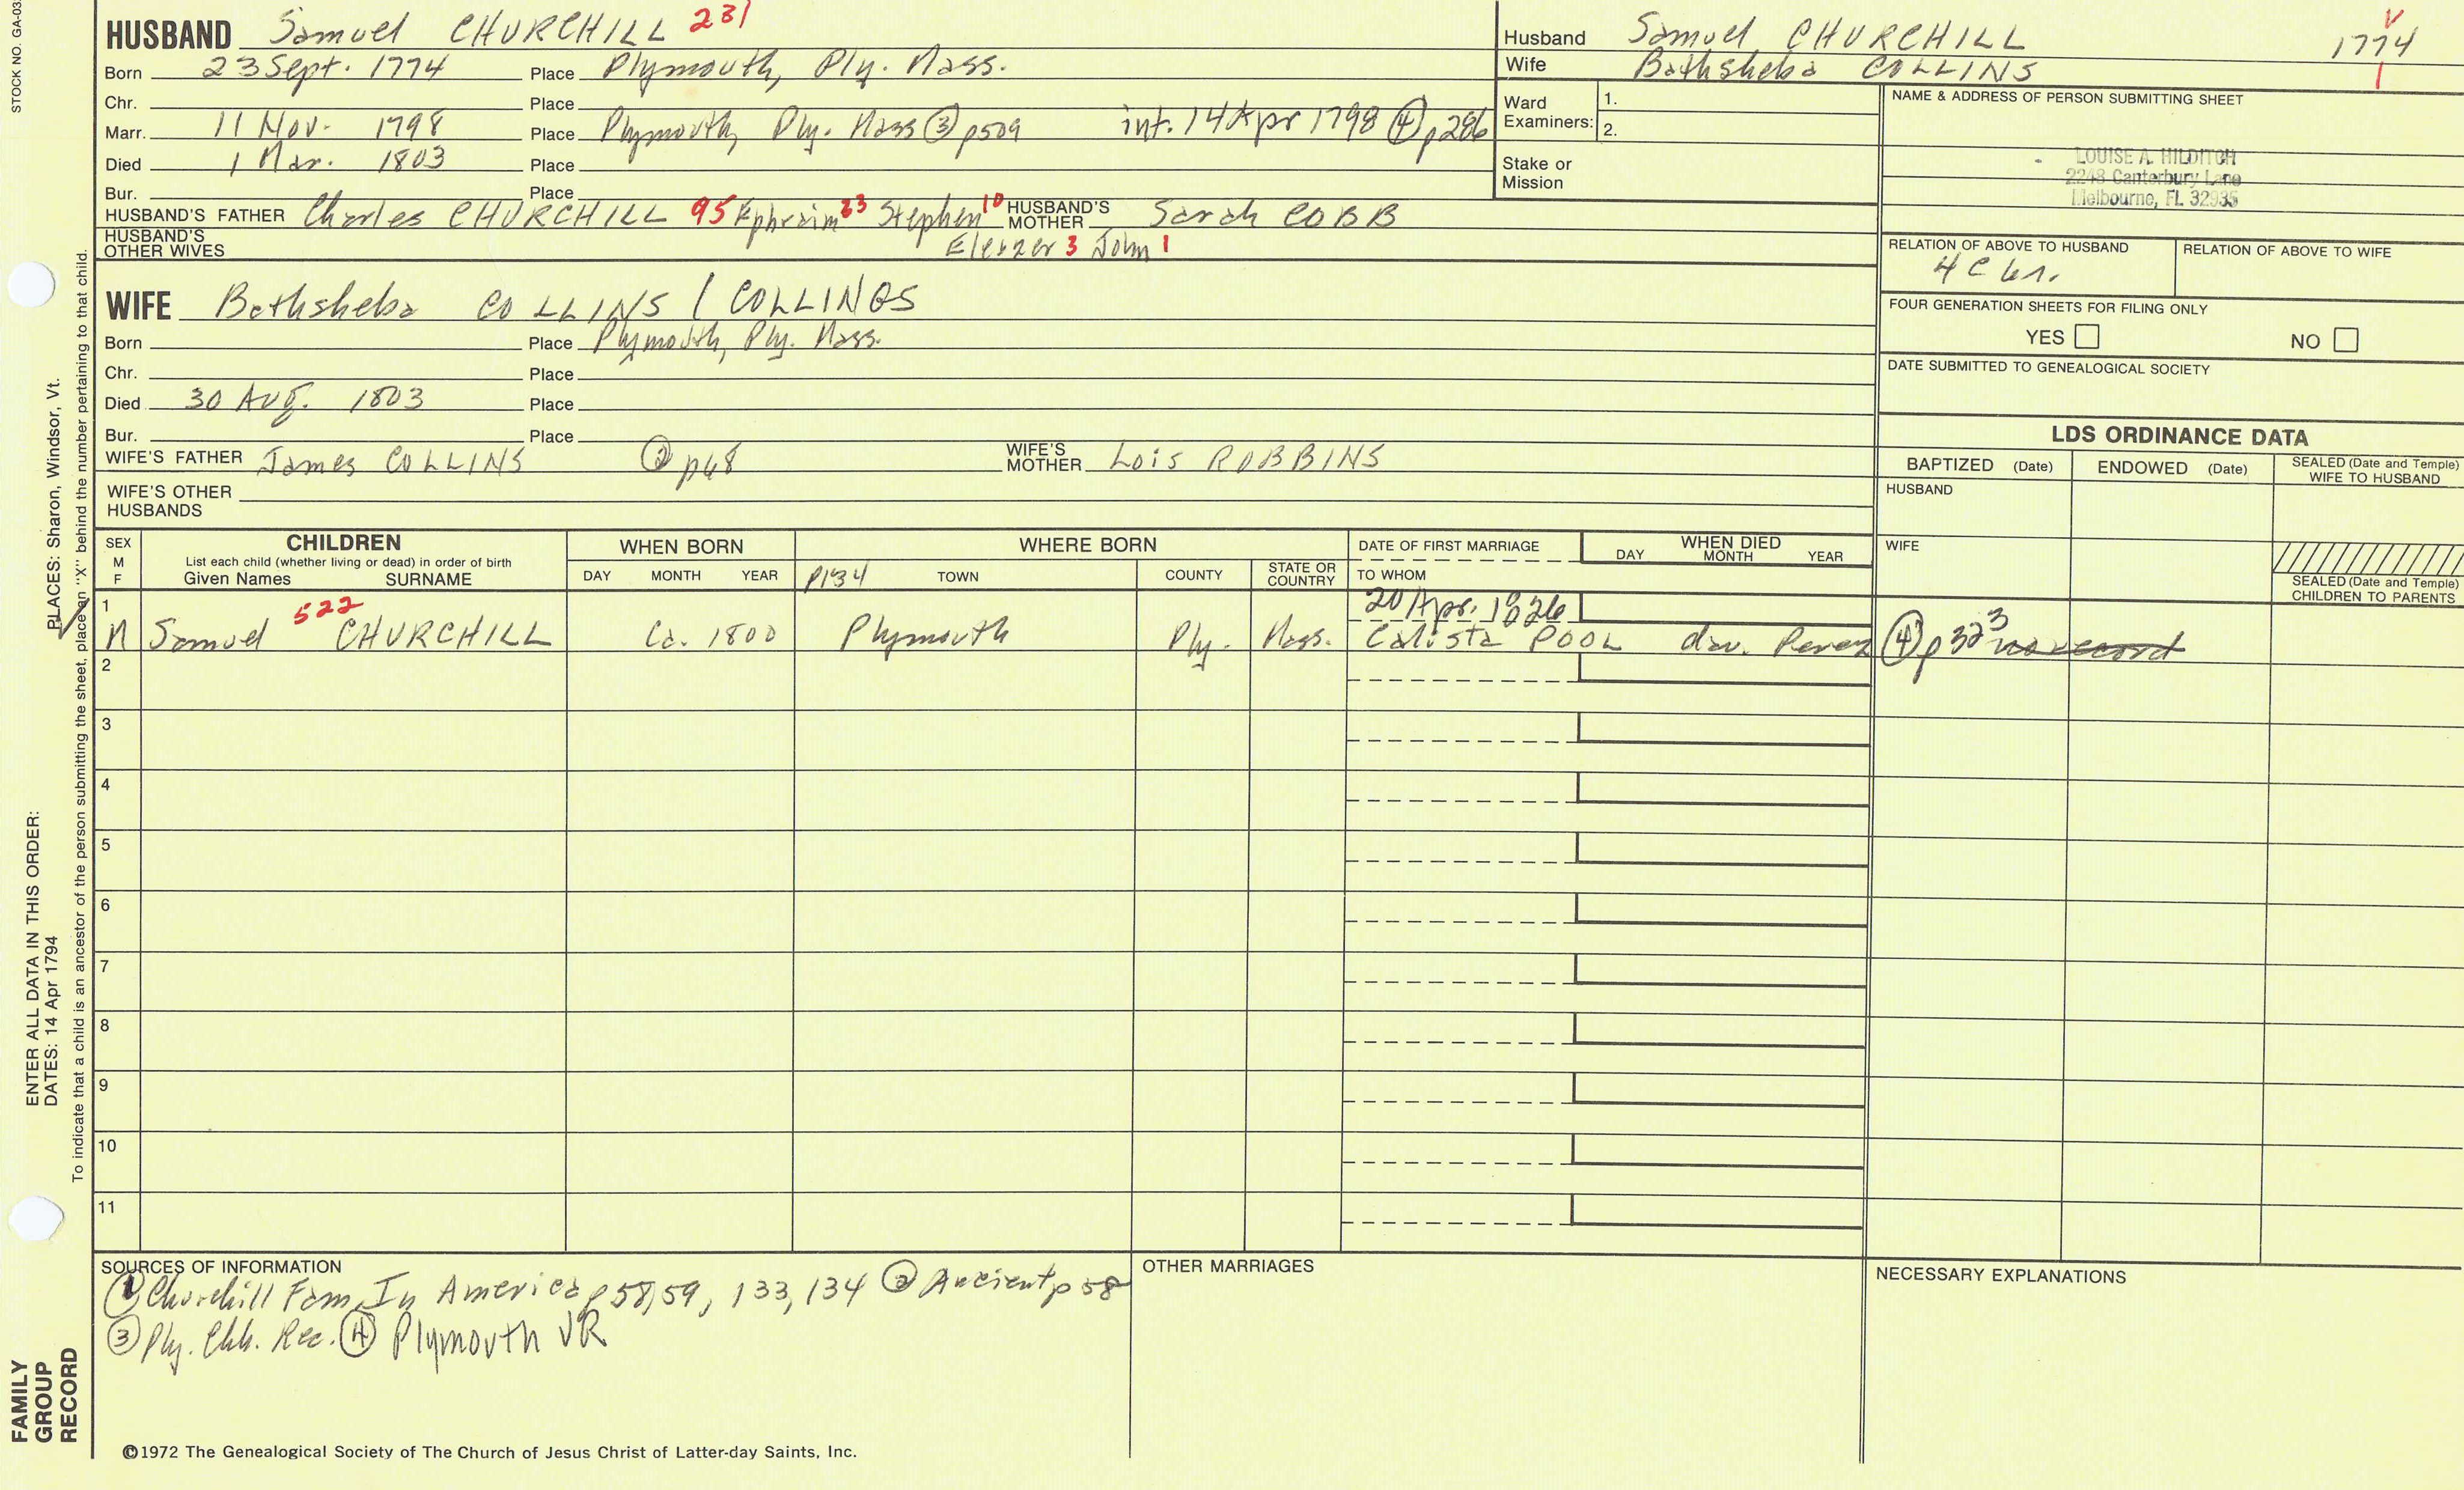 STOCK NO. GA-03
HUSBAND Samuel CHURCHILL 231
Born 23 Sept. 1774 Place Plymouth, Ply. Mass.
Chr. Place
Marr. 11 Nov. 1798 Place Plymouth, Ply. Mass ③ p509 int. 14 Apr 1798 ④ p286
Died 1 Mar. 1803 Place
Bur. Place
HUSBAND'S FATHER Charles CHURCHILL 95 Ephraim 23 Stephen 10 HUSBAND'S MOTHER Sarah COBB
HUSBAND'S OTHER WIVES Eleazer 3 John 1
Husband Samuel CHURCHILL 1774
Wife Bathsheba COLLINS 1
Ward Examiners: 1.
2.
Stake or Mission
NAME & ADDRESS OF PERSON SUBMITTING SHEET
LOUISE A. HILDITCH
2248 Canterbury Lane
Melbourne, FL 32935
RELATION OF ABOVE TO HUSBAND RELATION OF ABOVE TO WIFE
4 C
FOUR GENERATION SHEETS FOR FILING ONLY
YES NO
DATE SUBMITTED TO GENEALOGICAL SOCIETY
WIFE Bathsheba COLLINS / COLLINGS
Born Place Plymouth, Ply. Mass.
Chr. Place
Died 30 Aug. 1803 Place
Bur. Place
WIFE'S FATHER James COLLINS ② p68 WIFE'S MOTHER Lois ROBBINS
WIFE'S OTHER HUSBANDS
LDS ORDINANCE DATA
BAPTIZED (Date) ENDOWED (Date) SEALED (Date and Temple) WIFE TO HUSBAND
HUSBAND
WIFE
SEALED (Date and Temple) CHILDREN TO PARENTS
SEX M F CHILDREN WHEN BORN WHERE BORN DATE OF FIRST MARRIAGE WHEN DIED
List each child (whether living or dead) in order of birth
Given Names SURNAME DAY MONTH YEAR p134 TOWN COUNTY STATE OR COUNTRY TO WHOM DAY MONTH YEAR
1 522 20 Apr. 1826
M Samuel CHURCHILL Ca. 1800 Plymouth Ply. Mass. Calista POOL dau. Perez ④ p323 no record
2
3
4
5
6
7
8
9
10
11
SOURCES OF INFORMATION
① Churchill Fam. In America p58,59, 133, 134 ② Ancient p 58
③ Ply. Chh. Rec. ④ Plymouth VR
OTHER MARRIAGES
NECESSARY EXPLANATIONS
©1972 The Genealogical Society of The Church of Jesus Christ of Latter-day Saints, Inc.
FAMILY GROUP RECORD
ENTER ALL DATA IN THIS ORDER:
DATES: 14 Apr 1794 PLACES: Sharon, Windsor, Vt.
To indicate that a child is an ancestor of the person submitting the sheet, place an "X" behind the number pertaining to that child.